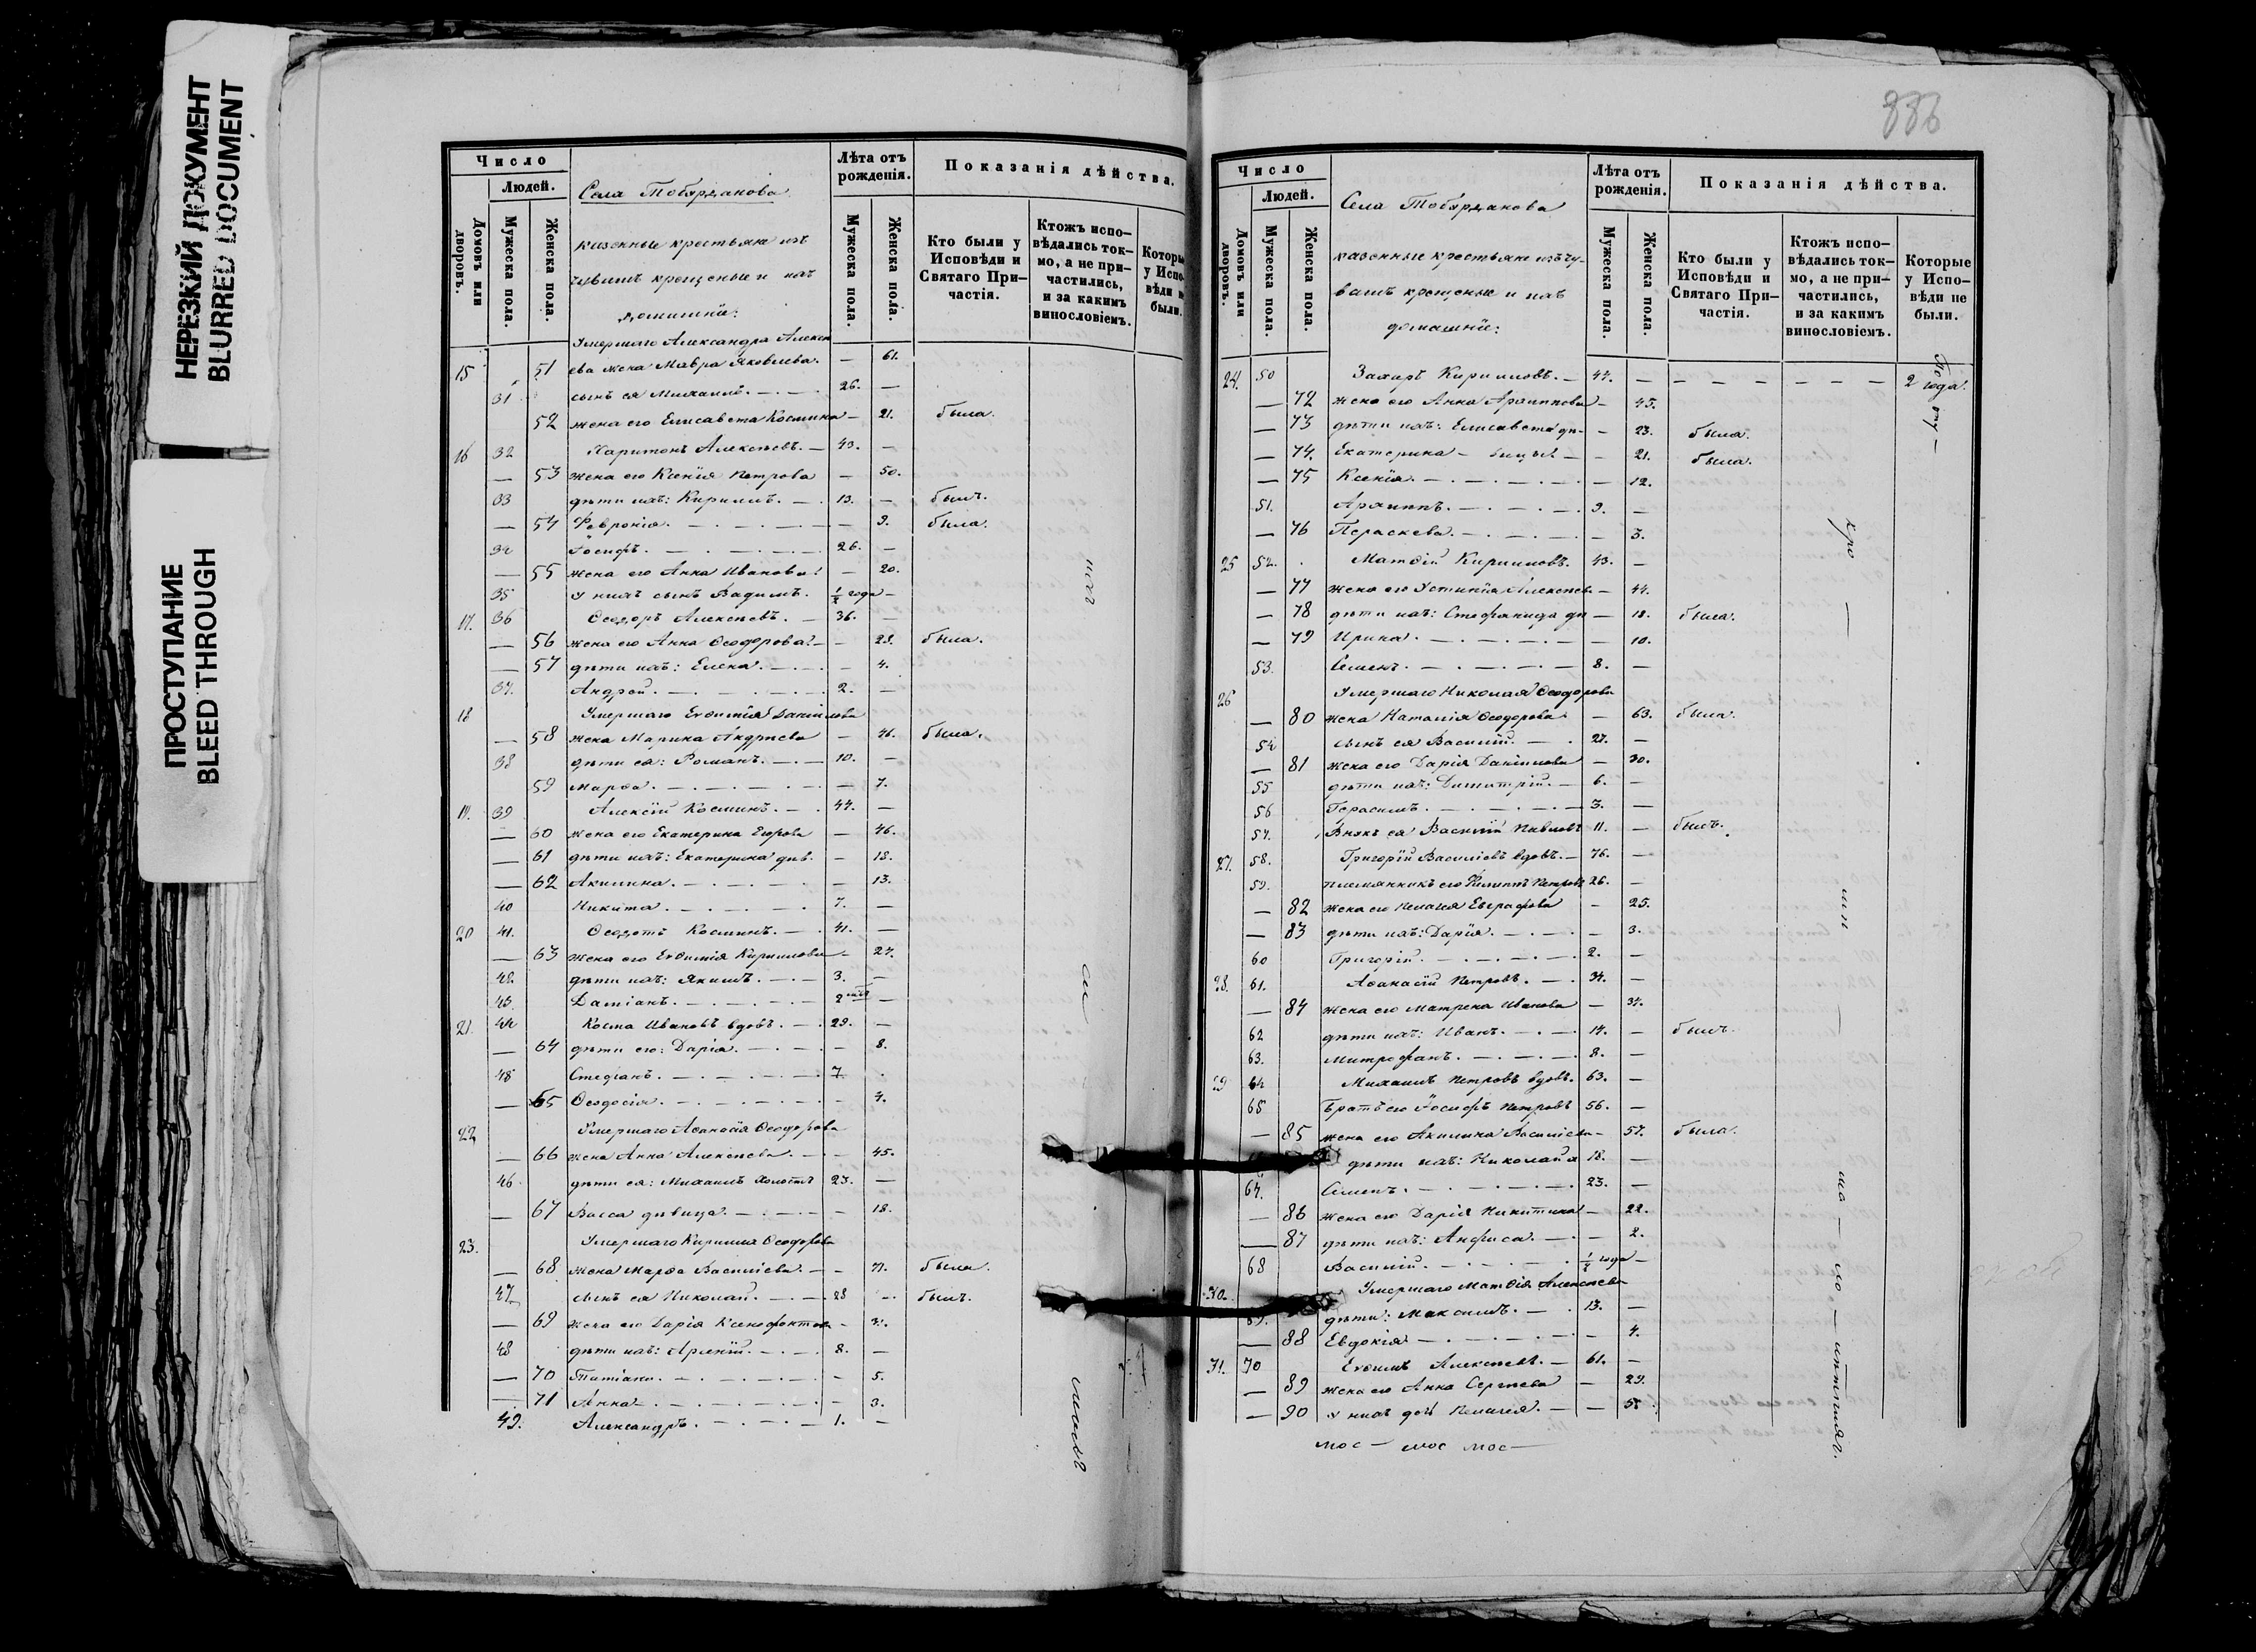 НЕРЕЗКИЙ ДОКУМЕНТ
BLURRED DOCUMENT
ПРОСТУПАНИЕ
BLEED THROUGH
Число
Людей.
Домовъ или дворовъ.
Мужеска пола.
Женска пола.
Села Тобурданова
казенные крестьяне изъ
чувашъ крещеные и ихъ
домашніе:
Лѣта отъ рожденія.
Мужеска пола.
Женска пола.
Показанія дѣйства.
Кто были у Исповѣди и Святаго Причастія.
Ктожъ исповѣдались токмо, а не причастились, и за какимъ винословіемъ.
Которые у Исповѣди не были.
Умершаго Александра Алексѣ
15 51 ева жена Мавра Яковлева. — 61.
31 сынъ ея Михаилъ. — 26. —
52 жена его Елисавета Космина — 21. была.
16 32 Харитонъ Алексѣевъ. — 43. —
— 53 жена его Ксенія Петрова — 50.
33 дѣти ихъ: Кириллъ. — 13. — былъ.
— 54 Февронія. — 9. была.
34 Іосифъ. — 26. —
— 55 жена его Анна Иванова — 20.
35 у нихъ сынъ Вадимъ. ½ года —
17. 36 Ѳеодоръ Алексѣевъ. — 36. —
— 56 жена его Анна Ѳеодорова — 29. была.
— 57 дѣти ихъ: Елена. — 4.
37. Андрей. — 2. —
18 Умершаго Евѳимія Данилова
— 58 жена Марина Андреева — 46. была.
38 дѣти ея: Романъ. — 10. —
59 Марѳа. — 7.
19. 39 Алексій Косминъ. — 44. —
— 60 жена его Екатерина Егорова — 46.
— 61 дѣти ихъ: Екатерина дѣв. — 18.
— 62 Акилина. — 13.
40 Никита. — 7. —
20 41. Ѳеодотъ Косминъ. — 41. —
— 63 жена его Евѳимія Кириллова — 27.
42. дѣти ихъ: Якимъ. — 3. —
43. Даміанъ. — 2 —
21. 44 Косма Ивановъ вдовъ. — 29. —
— 64 дѣти его: Дарія. — 8.
45 Стефанъ. — 7.
— 65 Ѳеодосія. — 4.
22 Умершаго Аѳанасія Ѳеодорова
— 66 жена Анна Алексѣева. — 45.
46. дѣти ея: Михаилъ холостъ 23. —
— 67 Васса дѣвица. — 18.
23. Умершаго Кирилла Ѳеодорова
— 68 жена Марѳа Василіева. — была.
47 сынъ ея Николай. — 28 — былъ.
— 69 жена его Дарія Ксенофонтова —
48 дѣти ихъ: Арсеній. — 8. —
— 70 Татіана. — 5.
— 71 Анна — 3.
49. Александръ. — 1. —
336
Число
Людей.
Домовъ или дворовъ.
Мужеска пола.
Женска пола.
Села Тобурданова
казенные крестьяне изъ чу-
вашъ крещеные и ихъ
домашніе:
Лѣта отъ рожденія.
Мужеска пола.
Женска пола.
Показанія дѣйства.
Кто были у Исповѣди и Святаго Причастія.
Ктожъ исповѣдались токмо, а не причастились, и за какимъ винословіемъ.
Которые у Исповѣди не были.
24. 50 Захаръ Кирилловъ. — 47. — 2 года.
— 72 жена его Анна Архиппова — 45.
— 73 дѣти ихъ: Елисавета дѣ- — 23. была.
— 74. Екатерина — вицы — 21. была.
— 75 Ксенія. — 12.
51. Архиппъ. — 9. —
— 76 Параскева. — 3.
25 52. Матѳій Кирилловъ. 43. —
— 77 жена его Устинія Алексѣева — 44.
— 78 дѣти ихъ: Стефанида дѣ — 18. была.
— 79 Ирина. — 10.
53. Семенъ. — 8. —
26 Умершаго Николая Ѳеодорова
— 80 жена Наталія Ѳеодорова — 63. была.
54 сынъ ея Василій. — 27. —
— 81 жена его Дарія Данилова — 30.
55 дѣти ихъ: Димитрій. — 6. —
56 Герасимъ. — 3. —
57. Внукъ ея Василій Павловъ 11. — былъ.
27. 58. Григорій Василіевъ вдовъ. — 76. —
59. племянникъ его Филиппъ Петровъ 26. —
— 82 жена его Пелагія Евграфова — 25.
— 83 дѣти ихъ: Дарія. — 3.
60 Григорій. — 2. —
28. 61. Аѳанасій Петровъ. — 34. —
— 84 жена его Матрена Иванова — 34.
62 дѣти ихъ: Иванъ. — 14. — былъ.
63. Митрофанъ. — 8. —
29 64 Михаилъ Петровъ вдовъ. 63. —
65 Братъ его Іосифъ Петровъ 56. —
— 85 жена его Акилина Василіева — 57. была.
дѣти ихъ: Николай 18. —
67. Семенъ. — 23. —
— 86 жена его Дарія Никитина — 22.
— 87 дѣти ихъ: Анфиса. — 2.
68 Василій. — ½ года —
30. Умершаго Матѳія Алексѣева
69. дѣти: Максимъ. — 13. —
— 88 Евдокія — 4.
31. 70 Евѳимъ Алексѣевъ. — 61. —
— 89 жена его Анна Сергѣева — 29.
— 90 у нихъ дочь Пелагія. — 5.